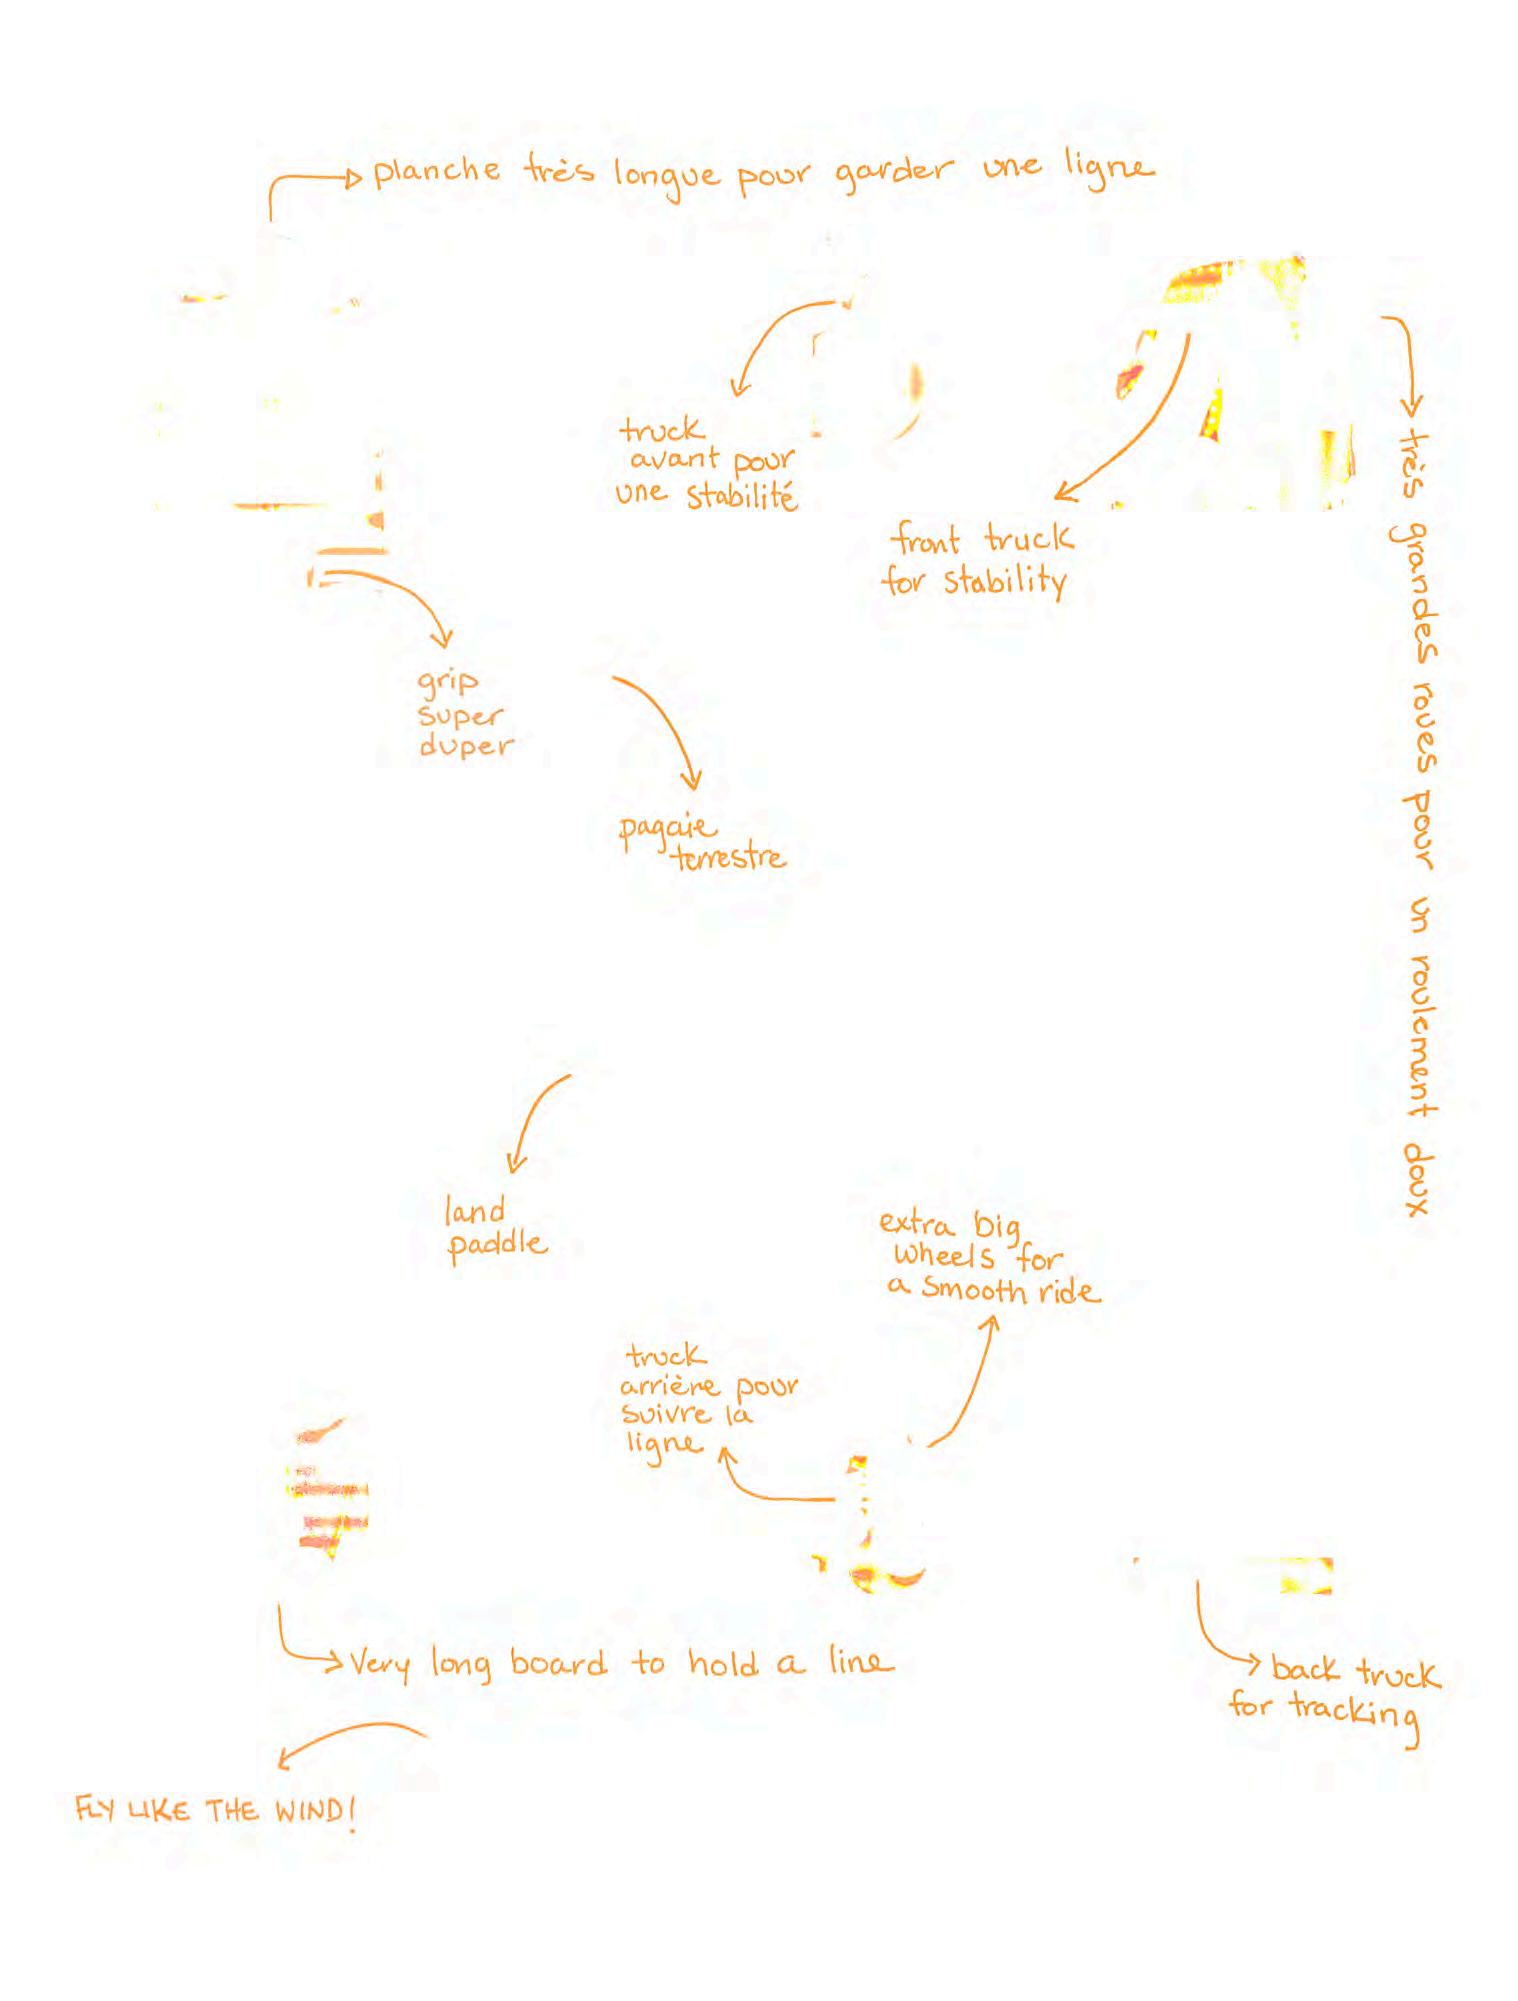 planche très longue pour garder une ligne
truck
avant pour
une stabilité
front truck
for stability
très grandes roues pour un roulement doux
grip
super
duper
pagaie
terrestre
land
paddle
extra big
wheels for
a smooth ride
truck
arrière pour
suivre la
ligne
Very long board to hold a line
back truck
for tracking
FLY LIKE THE WIND!